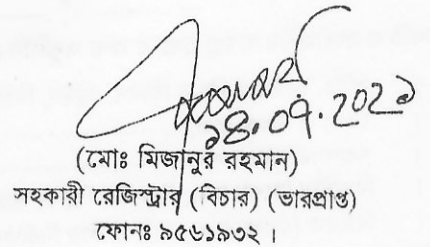 ১৪.০৭.২০২১
(মোঃ মিজানুর রহমান)
সহকারী রেজিস্ট্রার (বিচার) (ভারপ্রাপ্ত)
ফোনঃ ৯৫৬১৯৩২ ।